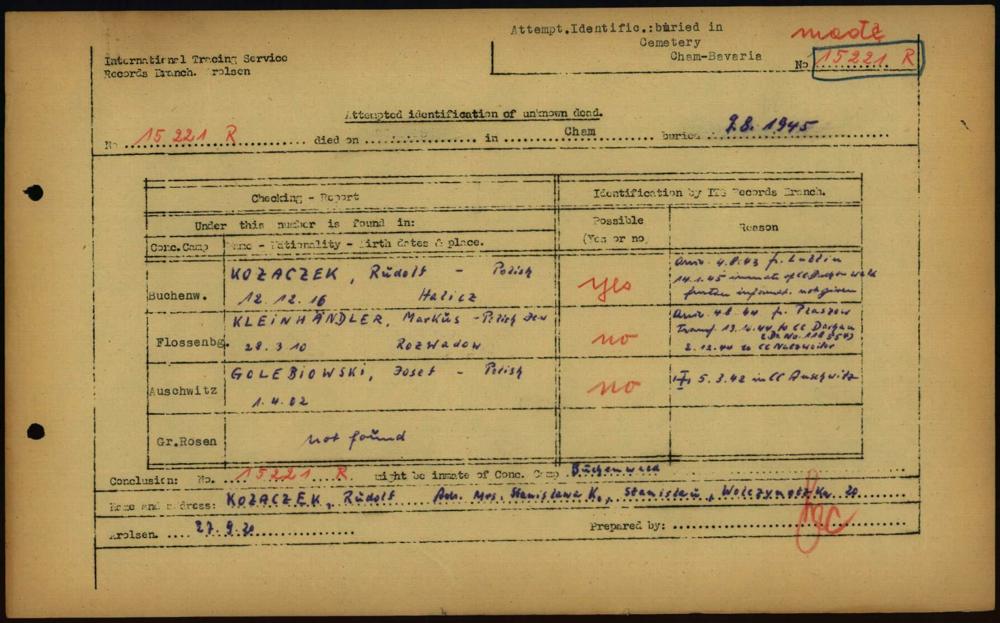 Attempt.Identific.:buried in
Cemetery
Cham-Bavaria
made
No 15221 R
International Tracing Service
Records Branch. Arolsen
Attempted identification of unknown dead.
No 15 221 R died on ........ in Cham buried 9.8. 1945
Checking - Report
Identification by ITS Records Branch.
Under this number is found in:
Possible
(Yes or no)
Reason
Conc.Camp
Name - Nationality - Birth dates & place.
Buchenw.
KOZACZEK, Rudolf - Polish
12.12.16 Halicz
yes
Arriv. 4.8.43 fr. Lublin
14.1.45 inmate of CC Buchenwald
further informat. not given
Flossenbg.
KLEINHÄNDLER, Markus - Polish Jew
28.3.10 Rozwadow
no
Arriv. 4.8.44 fr. Plaszow
Transf. 13.10.44 to CC Dachau
2.12.44 to CC Natzweiler
Auschwitz
GOLEBIOWSKI, Josef - Polish
1.4.02
no
5.3.42 in CC Auschwitz
Gr.Rosen
not found
Conclusion: No. 15221 R might be inmate of Conc. Camp Buchenwald
Name and address: KOZACZEK, Rudolf Adr. Mrs. Stanislawa K., Stanislau, 20
Arolsen. 27.9.50
Prepared by: